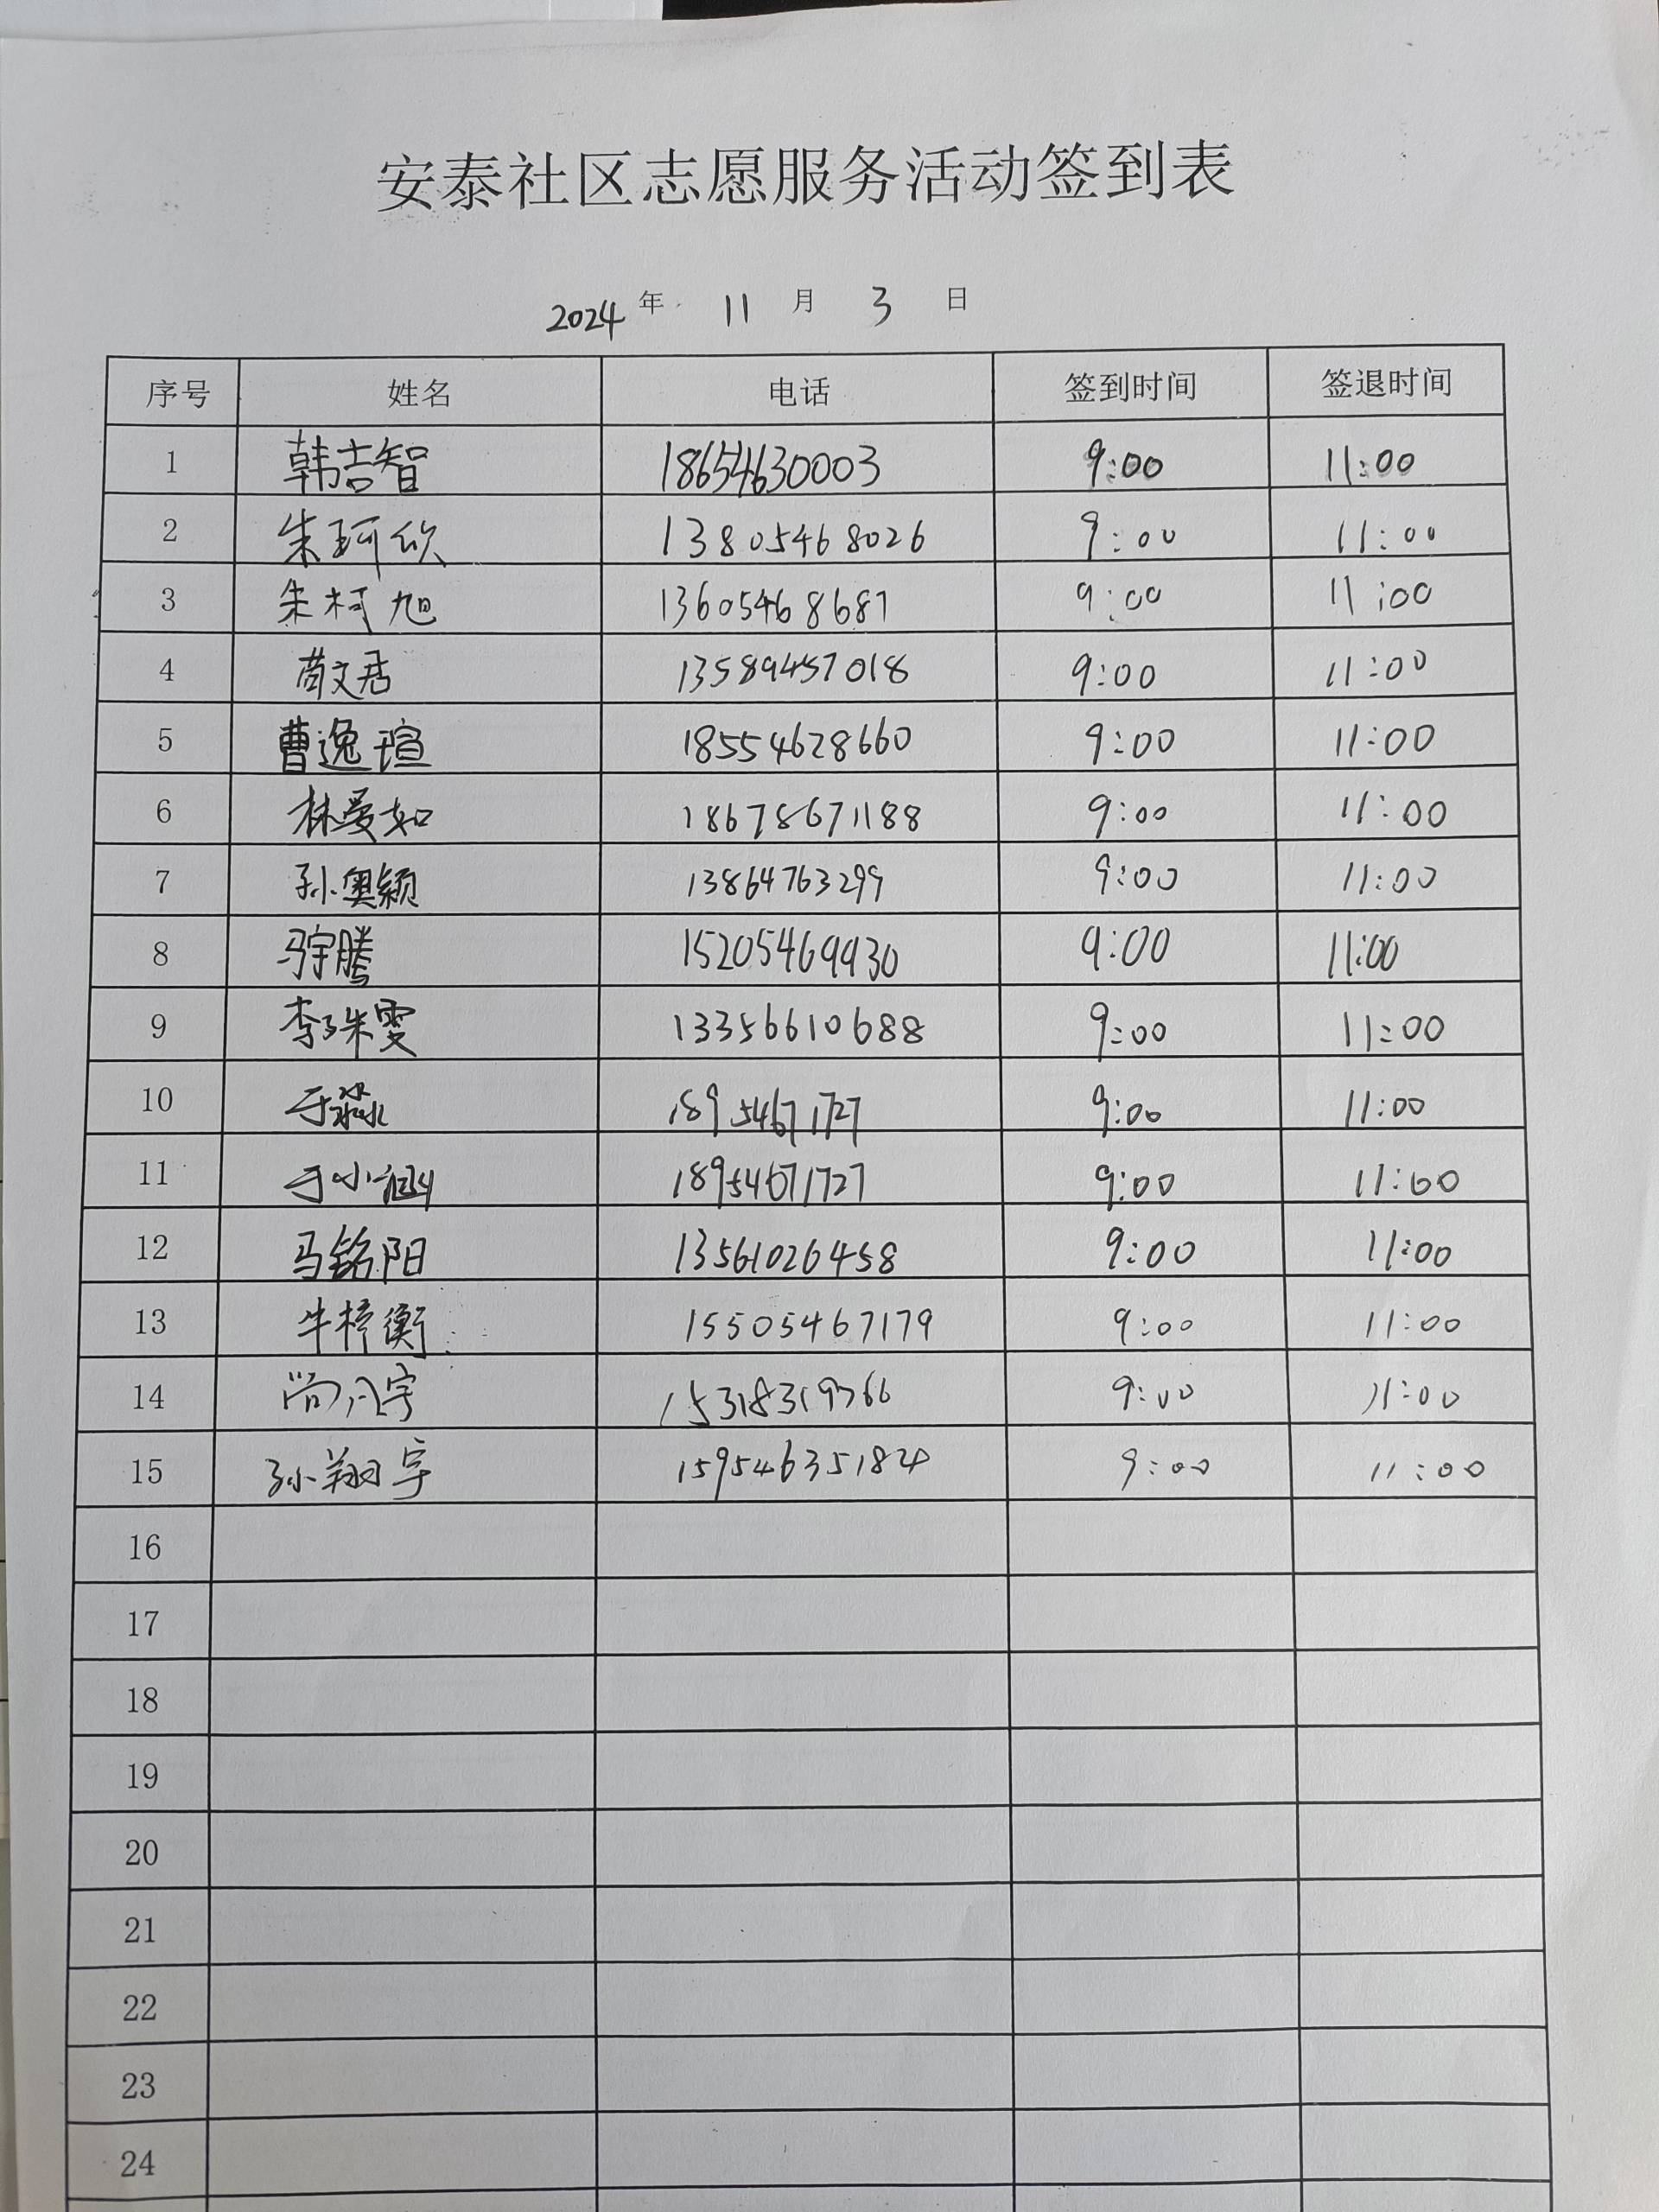 安泰社区志愿服务活动签到表
2024 年 11 月 3 日
序号 姓名 电话 签到时间 签退时间
1 韩吉智 18654630003 9:00 11:00
2 朱珂欣 13805468026 9:00 11:00
3 朱柯旭 13605468687 9:00 11:00
4 苘文君 13589457018 9:00 11:00
5 曹逸瑄 18554628660 9:00 11:00
6 林曼如 18678671188 9:00 11:00
7 孙奥颖 13864763299 9:00 11:00
8 马宇腾 15205469930 9:00 11:00
9 李珠雯 13356610688 9:00 11:00
10 于淼 18954671727 9:00 11:00
11 于小涵 18954671727 9:00 11:00
12 马铭阳 13561026458 9:00 11:00
13 牛梓衡 15505467179 9:00 11:00
14 9:00 11:00
15 孙翔宇 15954635182 9:00 11:00
16
17
18
19
20
21
22
23
24